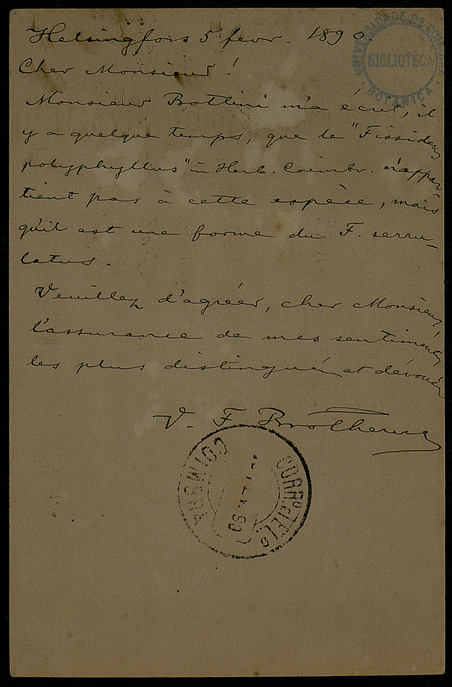 Helsingfors 5 fevr. 1890.
Cher Monsieur!
Monsieur Bottini m'a écrit, il
y a quelque temps, que le "Fissidens
polyphyllus" in Herb. Coimbr. n'appar
tient pas à cette espèce, mais
qu'il est une forme du F. serru-
latus.
Veuillez d'agréer, cher Monsieur,
l'assurance de mes sentiments
les plus distingués et dévoués
V. F. Brotherus
UNIVERSIDADE DE COIMBRA
BIBLIOTECA
BOTANICA
COIMBRA
CORRº E TELº